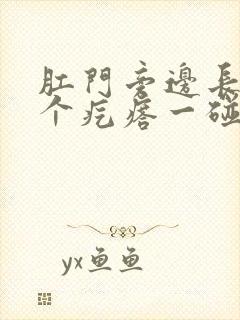 肛門旁邊長
个疙瘩一碰
yx鱼鱼